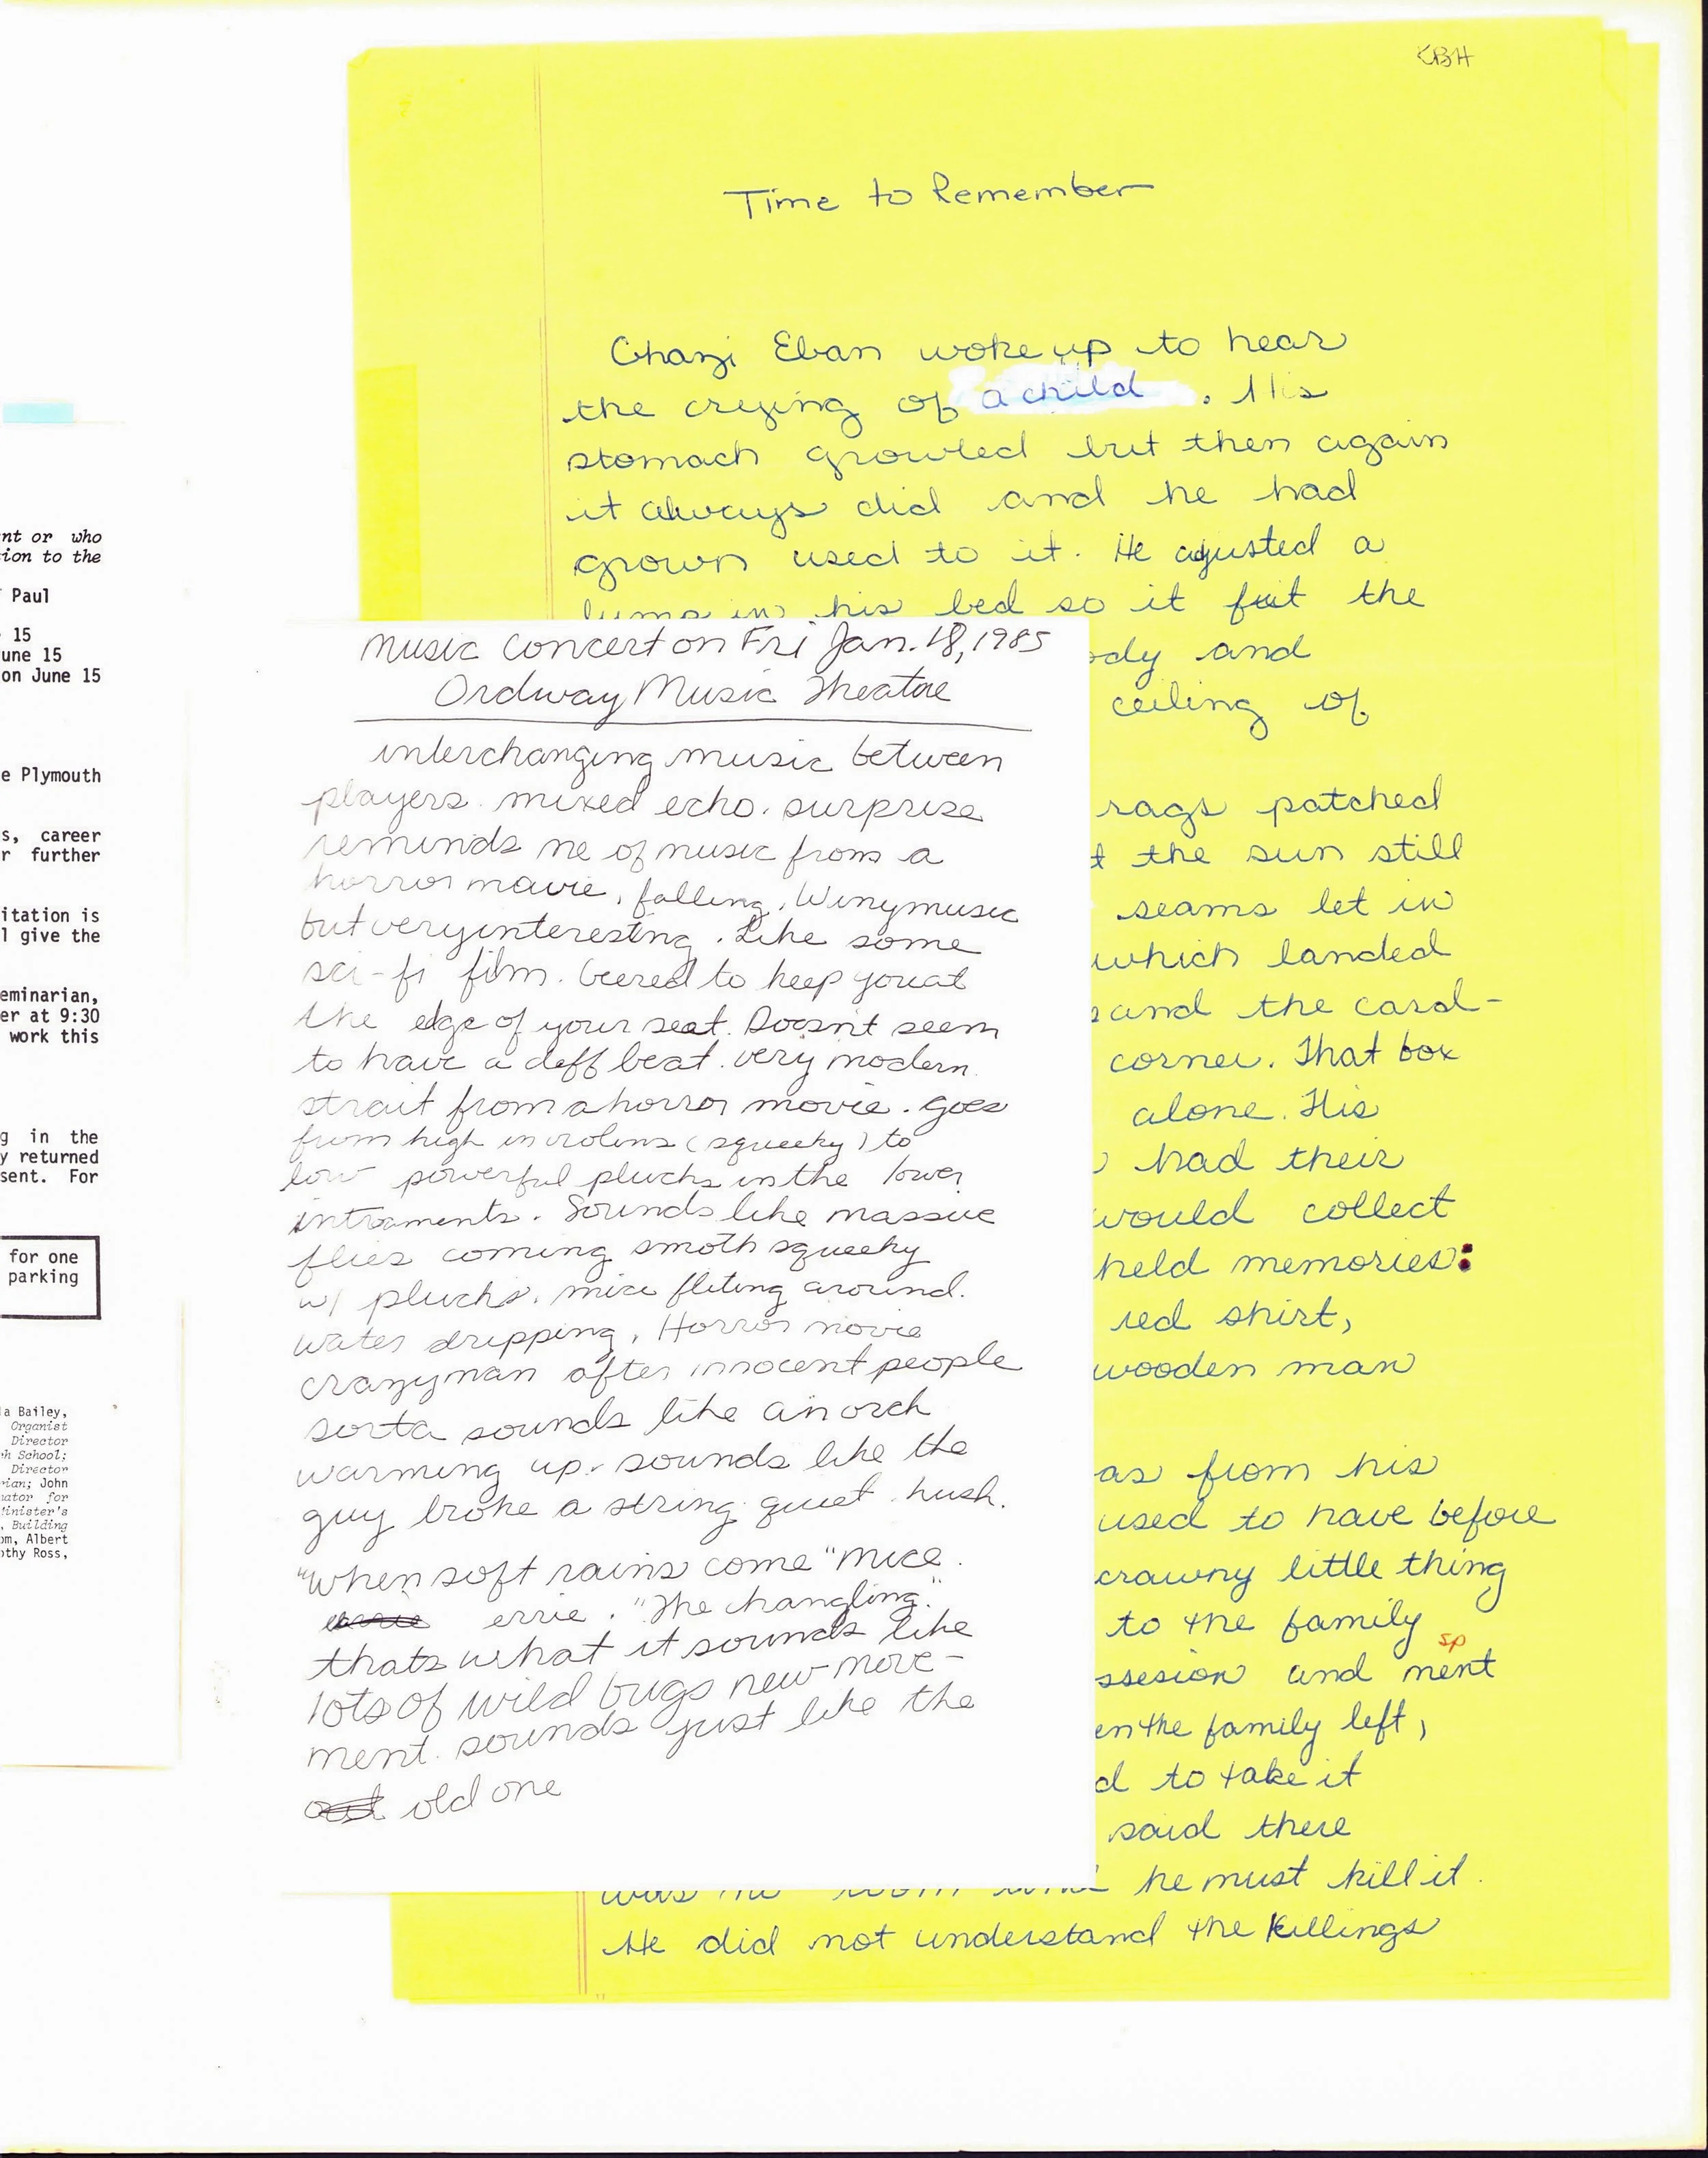 nt or who
ion to the
Paul
15
une 15
on June 15
e Plymouth
s, career
r further
itation is
l give the
eminarian,
er at 9:30
work this
g in the
y returned
sent. For
for one
parking
a Bailey,
Organist
Director
h School;
Director
rian; John
nator for
Minister's
, Building
om, Albert
othy Ross,
KBH
Time to Remember
Ghazi Eban woke up to hear
the crying of a child . His
stomach growled but then again
it always did and he had
grown used to it. He ajusted a
lump in his bed so it fuit the
ody and
ceiling of
rags patched
t the sun still
seams let in
which landed
and the card-
corner. That box
alone. His
had their
would collect
held memories:
red shirt,
wooden man
as from his
used to have before
crawny little thing
to the family
sp
ssesion and ment
en the family left,
d to take it
said there
was no room and he must kill it.
He did not understand the killings
Music Concert on Fri Jan. 18, 1985
Ordway Music Theatre
interchanging music between
players. mixed echo. surprise
reminds me of music from a
horror movie, falling, Winy music
but very interesting. Like some
sci-fi film. Geered to keep you at
the edge of your seat. Doesn't seem
to have a deff beat. very modern.
strait from a horror movie. goes
from high in violins (squeeky) to
low powerful plucks in the lower
intraments. Sounds like massive
flies coming smoth squeeky
w/ plucks. mice fliting around.
water dripping, Horror movie
crazy man after innocent people
sorta sounds like an orch
warming up. sounds like the
guy broke a string. quiet. hush.
"When soft rains come" mice.
errie. "The changling."
thats what it sounds like
lots of wild bugs new move-
ment. sounds just like the
old one